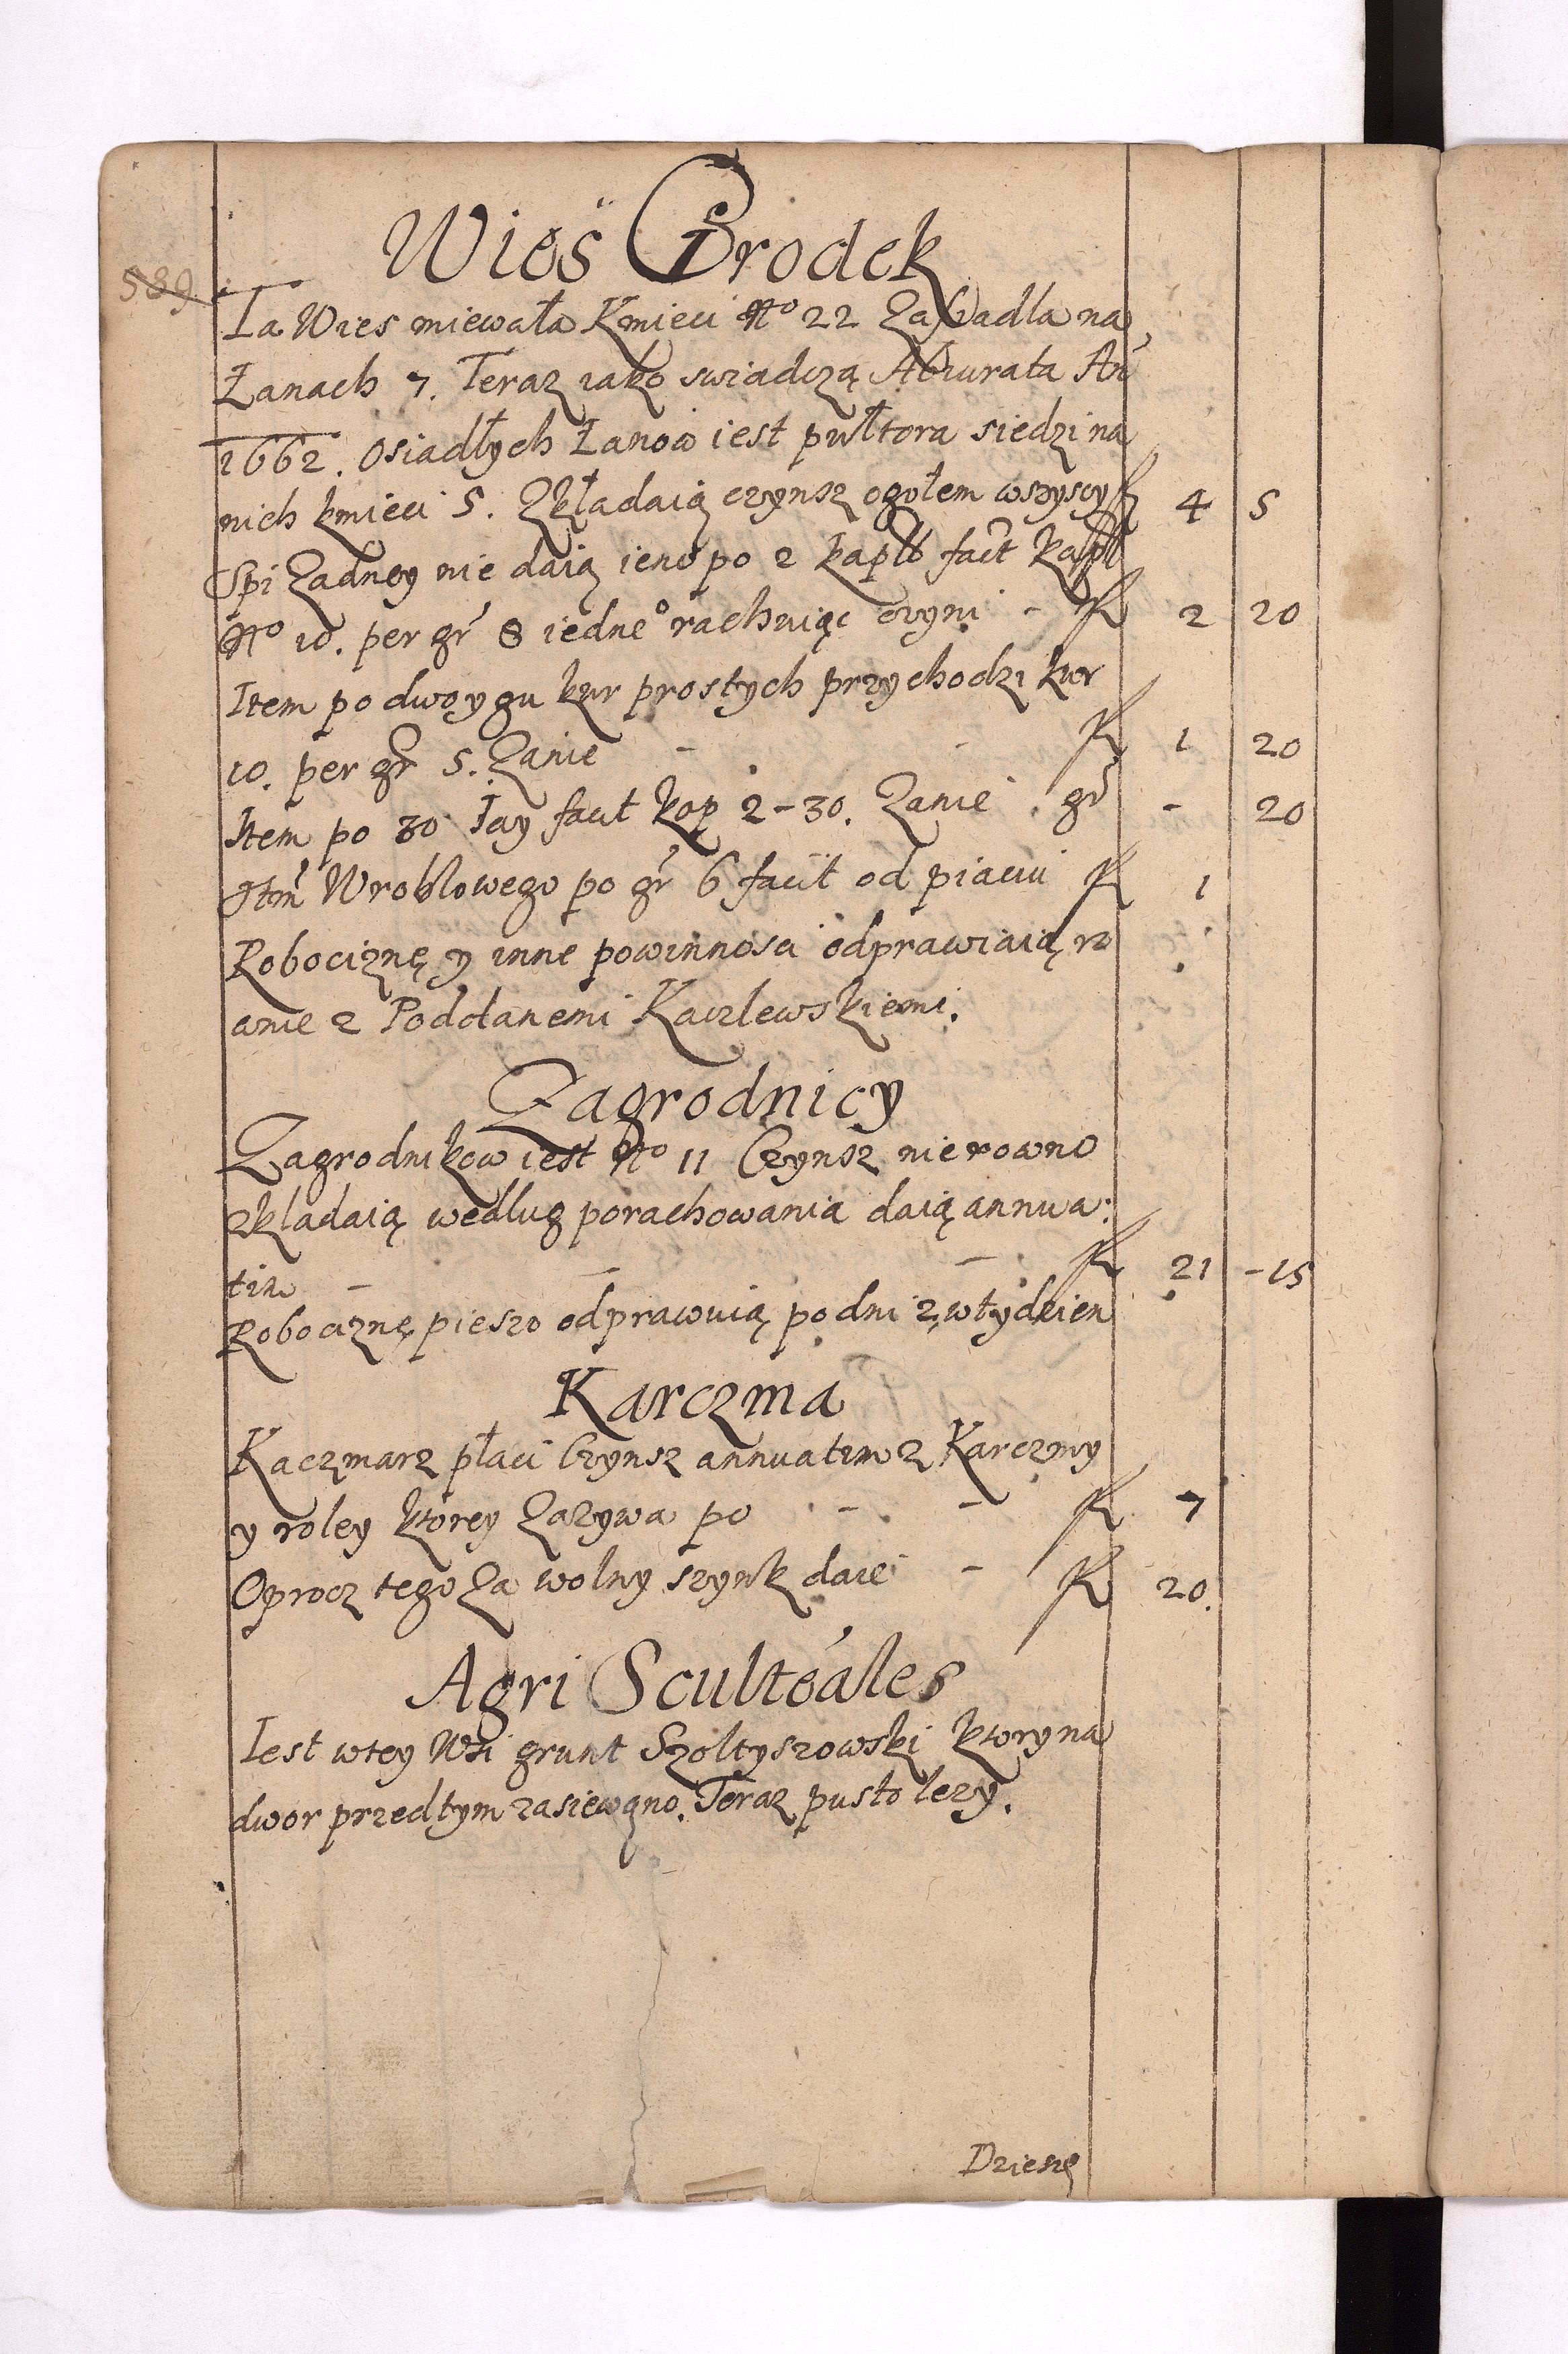 Wieś Grodek
589
Ta Wies miewała Kmieci No 22 Zasiadła na
Łanach 7. Teraz iako swiadczą Abiurata An
1662. Osiadłych Łanow iest pułtora siedzi na
nich kmieci 5. Zkładaią czynsz ogołem wszyscy f 4 5
Spi Zadney nie daią ieno po 2 kapł facit kapł
No 10. per gr 8 iedneo rachuiąc czyni - f 2 20
Item po dwoygu kur prostych przychodzi kur
10. per gr 5. Zanie - - f 1 20
Item po 30 Jay facit kop 2-30. Zanie gr - 20
Itm Wroblowego po gr 6 facit od piaciu f 1
Robociznę y inne powinnosci odprawiaią ro
wnie z Poddanemi Kaczlewskiemi.
Zagrodnicy
Zagrodnikow iest No 11 Czynsz nierowno
zkladaią wedlug porachowania daią annua:
tim - - - f 21 -15
Robociznę pieszo odprawuią po dni 2 w tydzien
Karczma
Kaczmarz płaci Czynsz annuatim z Karczmy
y roley ktorey Zazywa po - - f 7
Oprocz tego Za wolny szynk daie - f 20.
Agri Sculteales
Iest w tey Wsi grunt Szoltyszowski ktory na
dwor przedtym zasiewano. Teraz pusto lezy.
Dziesię